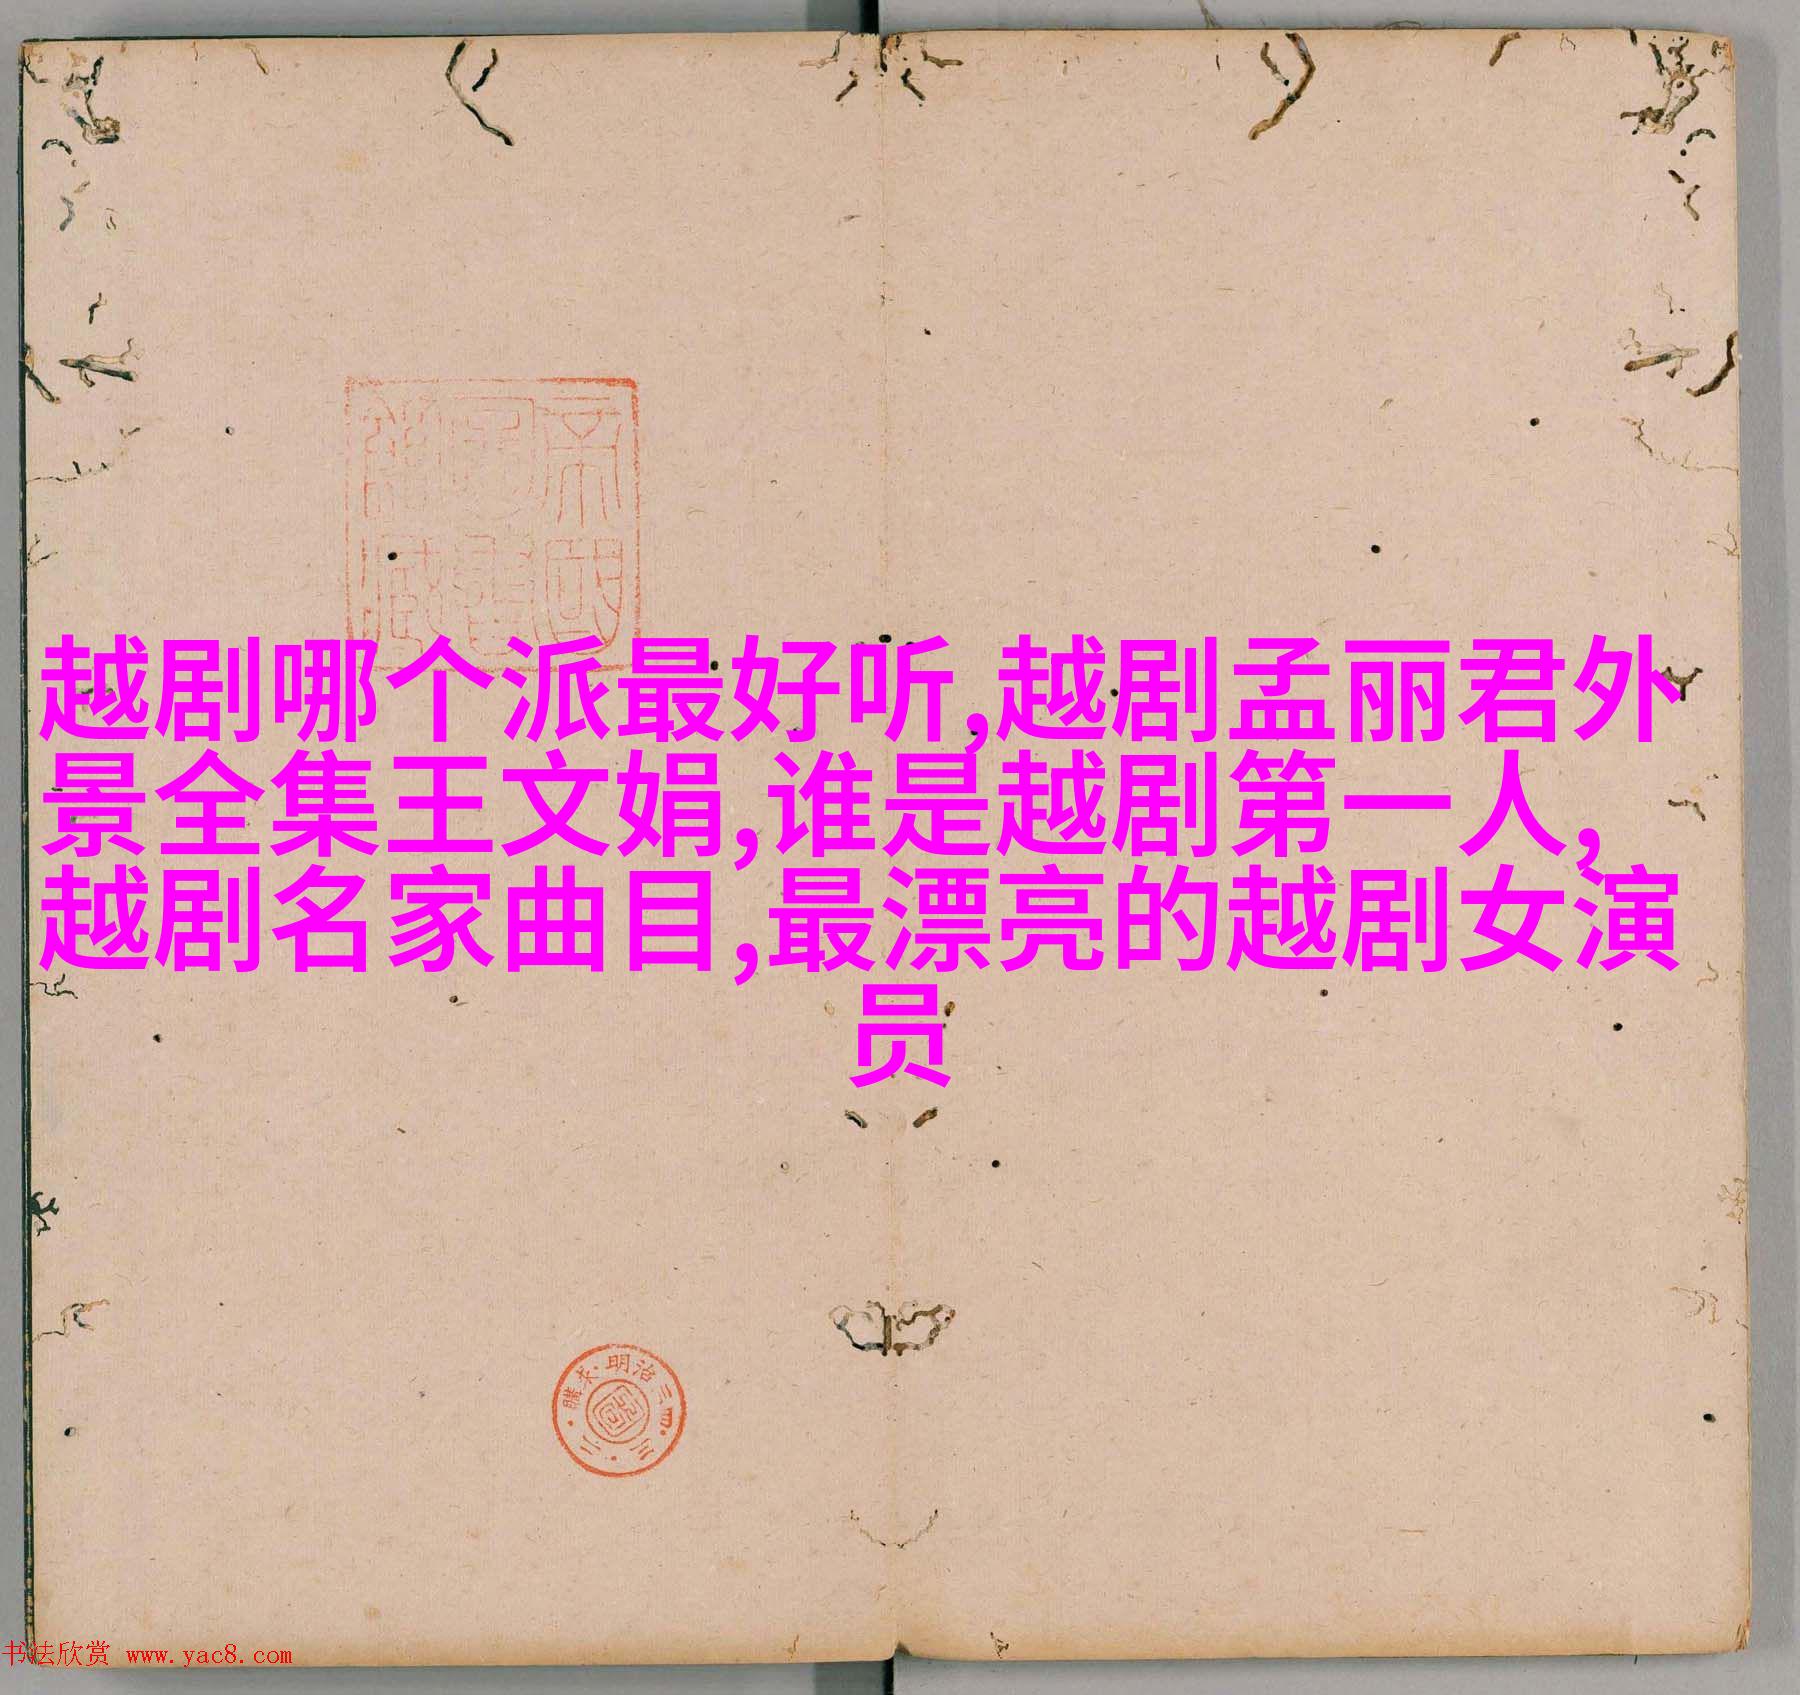 帝国
図書
館蔵
越剧哪个派最好听,越剧孟丽君外
景全集王文娟,谁是越剧第一人,
越剧名家曲目,最漂亮的越剧女演
员
明治三四·三·二·購求·
书法欣赏 www.yac8.com